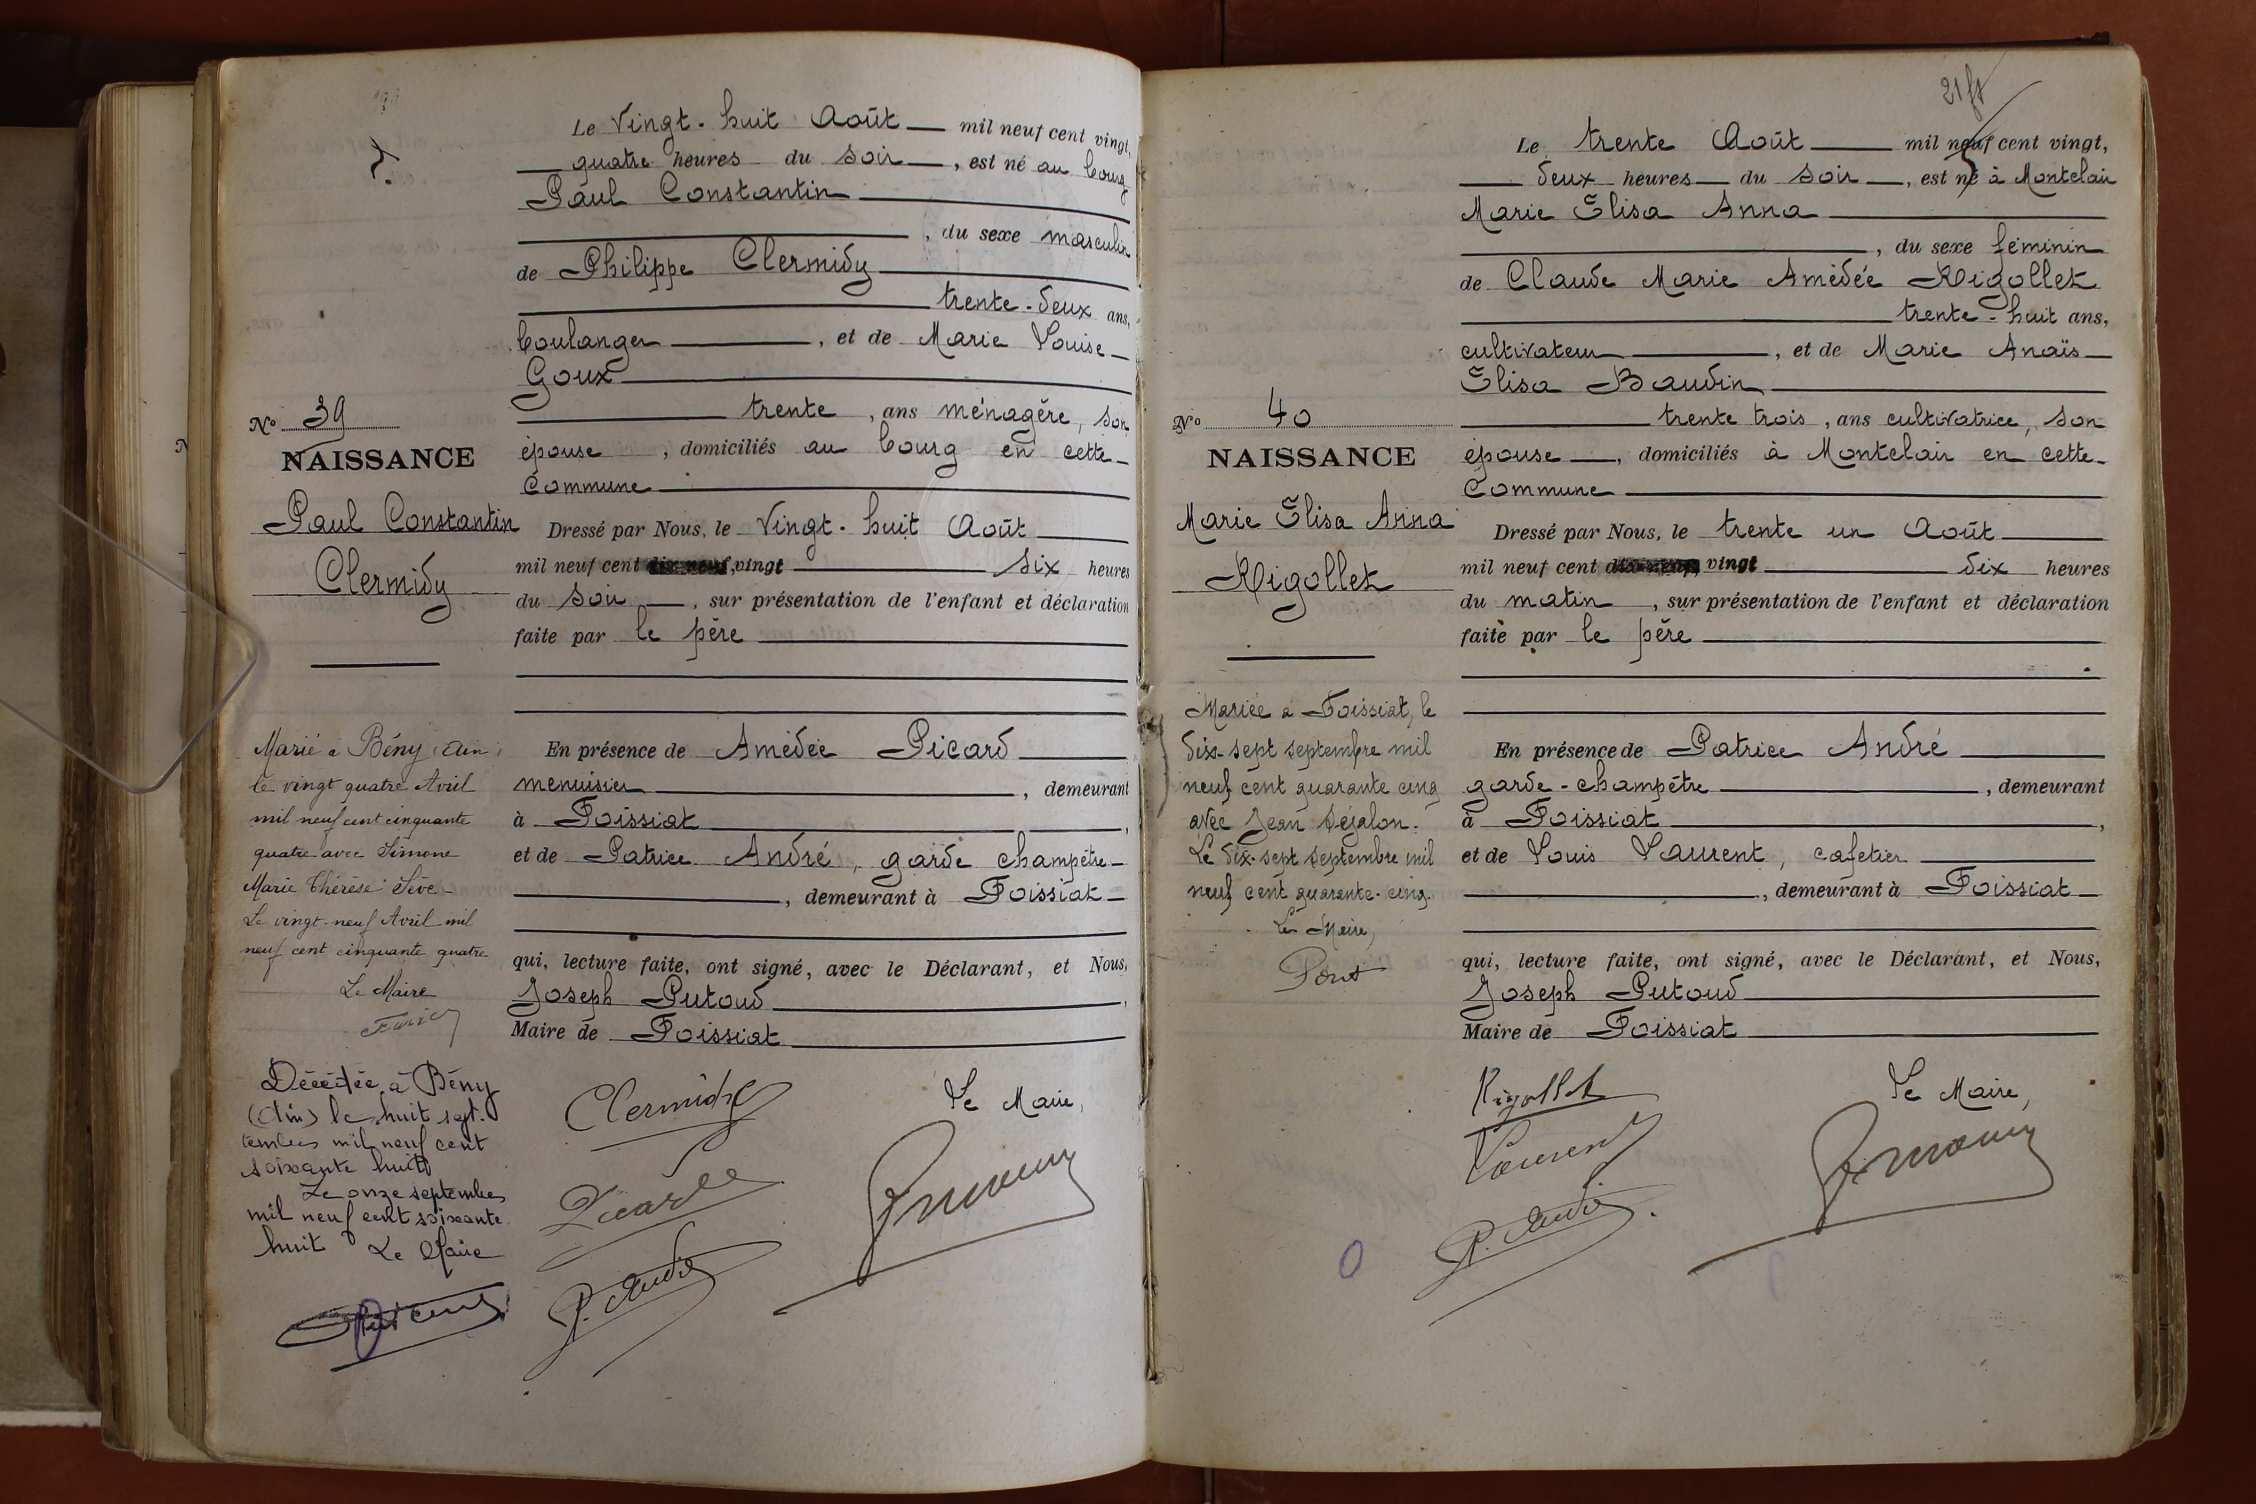 Le Vingt-huit Août mil neuf cent vingt,
quatre heures du soir, est né au bourg
Paul Constantin
, du sexe masculin
de Philippe Clermidy
trente-deux ans,
boulanger, et de Marie Louise
Goux
trente, ans ménagère, son
épouse, domiciliés au bourg en cette
Commune
Dressé par Nous, le Vingt-huit Août
mil neuf cent dix neuf, vingt six heures
du soir, sur présentation de l'enfant et déclaration
faite par le père
En présence de Amédée Picard
menuisier, demeurant
à Foissiat,
et de Patrice André, garde champêtre
, demeurant à Foissiat
qui, lecture faite, ont signé, avec le Déclarant, et Nous,
Joseph Putoud,
Maire de Foissiat
Clermidy
Le Maire,
Picard
P. André
No 39
NAISSANCE
Paul Constantin
Clermidy
Marié à Bény (Ain)
le vingt quatre Avril
mil neuf cent cinquante
quatre avec Simone
Marie Thérèse Sève
Le vingt-neuf Avril mil
neuf cent cinquante quatre
Le Maire
Décédée à Bény
(Ain) le huit sept-
tembre mil neuf cent
soixante huit
Le onze septembre
mil neuf cent soixante
huit Le Maire
21 ft
Le trente Août mil neuf cent vingt,
deux heures du soir, est né à Montclair
Marie Élisa Anna
, du sexe féminin
de Claude Marie Amédée Rigollet
trente-huit ans,
cultivateur, et de Marie Anaïs
Élisa Baudin
trente trois, ans cultivatrice, son
épouse, domiciliés à Montclair en cette
Commune
Dressé par Nous, le trente un Août
mil neuf cent dix neuf, vingt dix heures
du matin, sur présentation de l'enfant et déclaration
faite par le père
En présence de Patrice André
garde-champêtre, demeurant
à Foissiat,
et de Louis Laurent, cafetier
, demeurant à Foissiat
qui, lecture faite, ont signé, avec le Déclarant, et Nous,
Joseph Putoud
Maire de Foissiat
Rigollet
Le Maire,
Laurent
P. André
No 40
NAISSANCE
Marie Élisa Anna
Rigollet
Mariée à Foissiat, le
dix-sept septembre mil
neuf cent quarante cinq
avec Jean Séjalon.
Le dix-sept septembre mil
neuf cent quarante-cinq.
Le Maire,
Pont